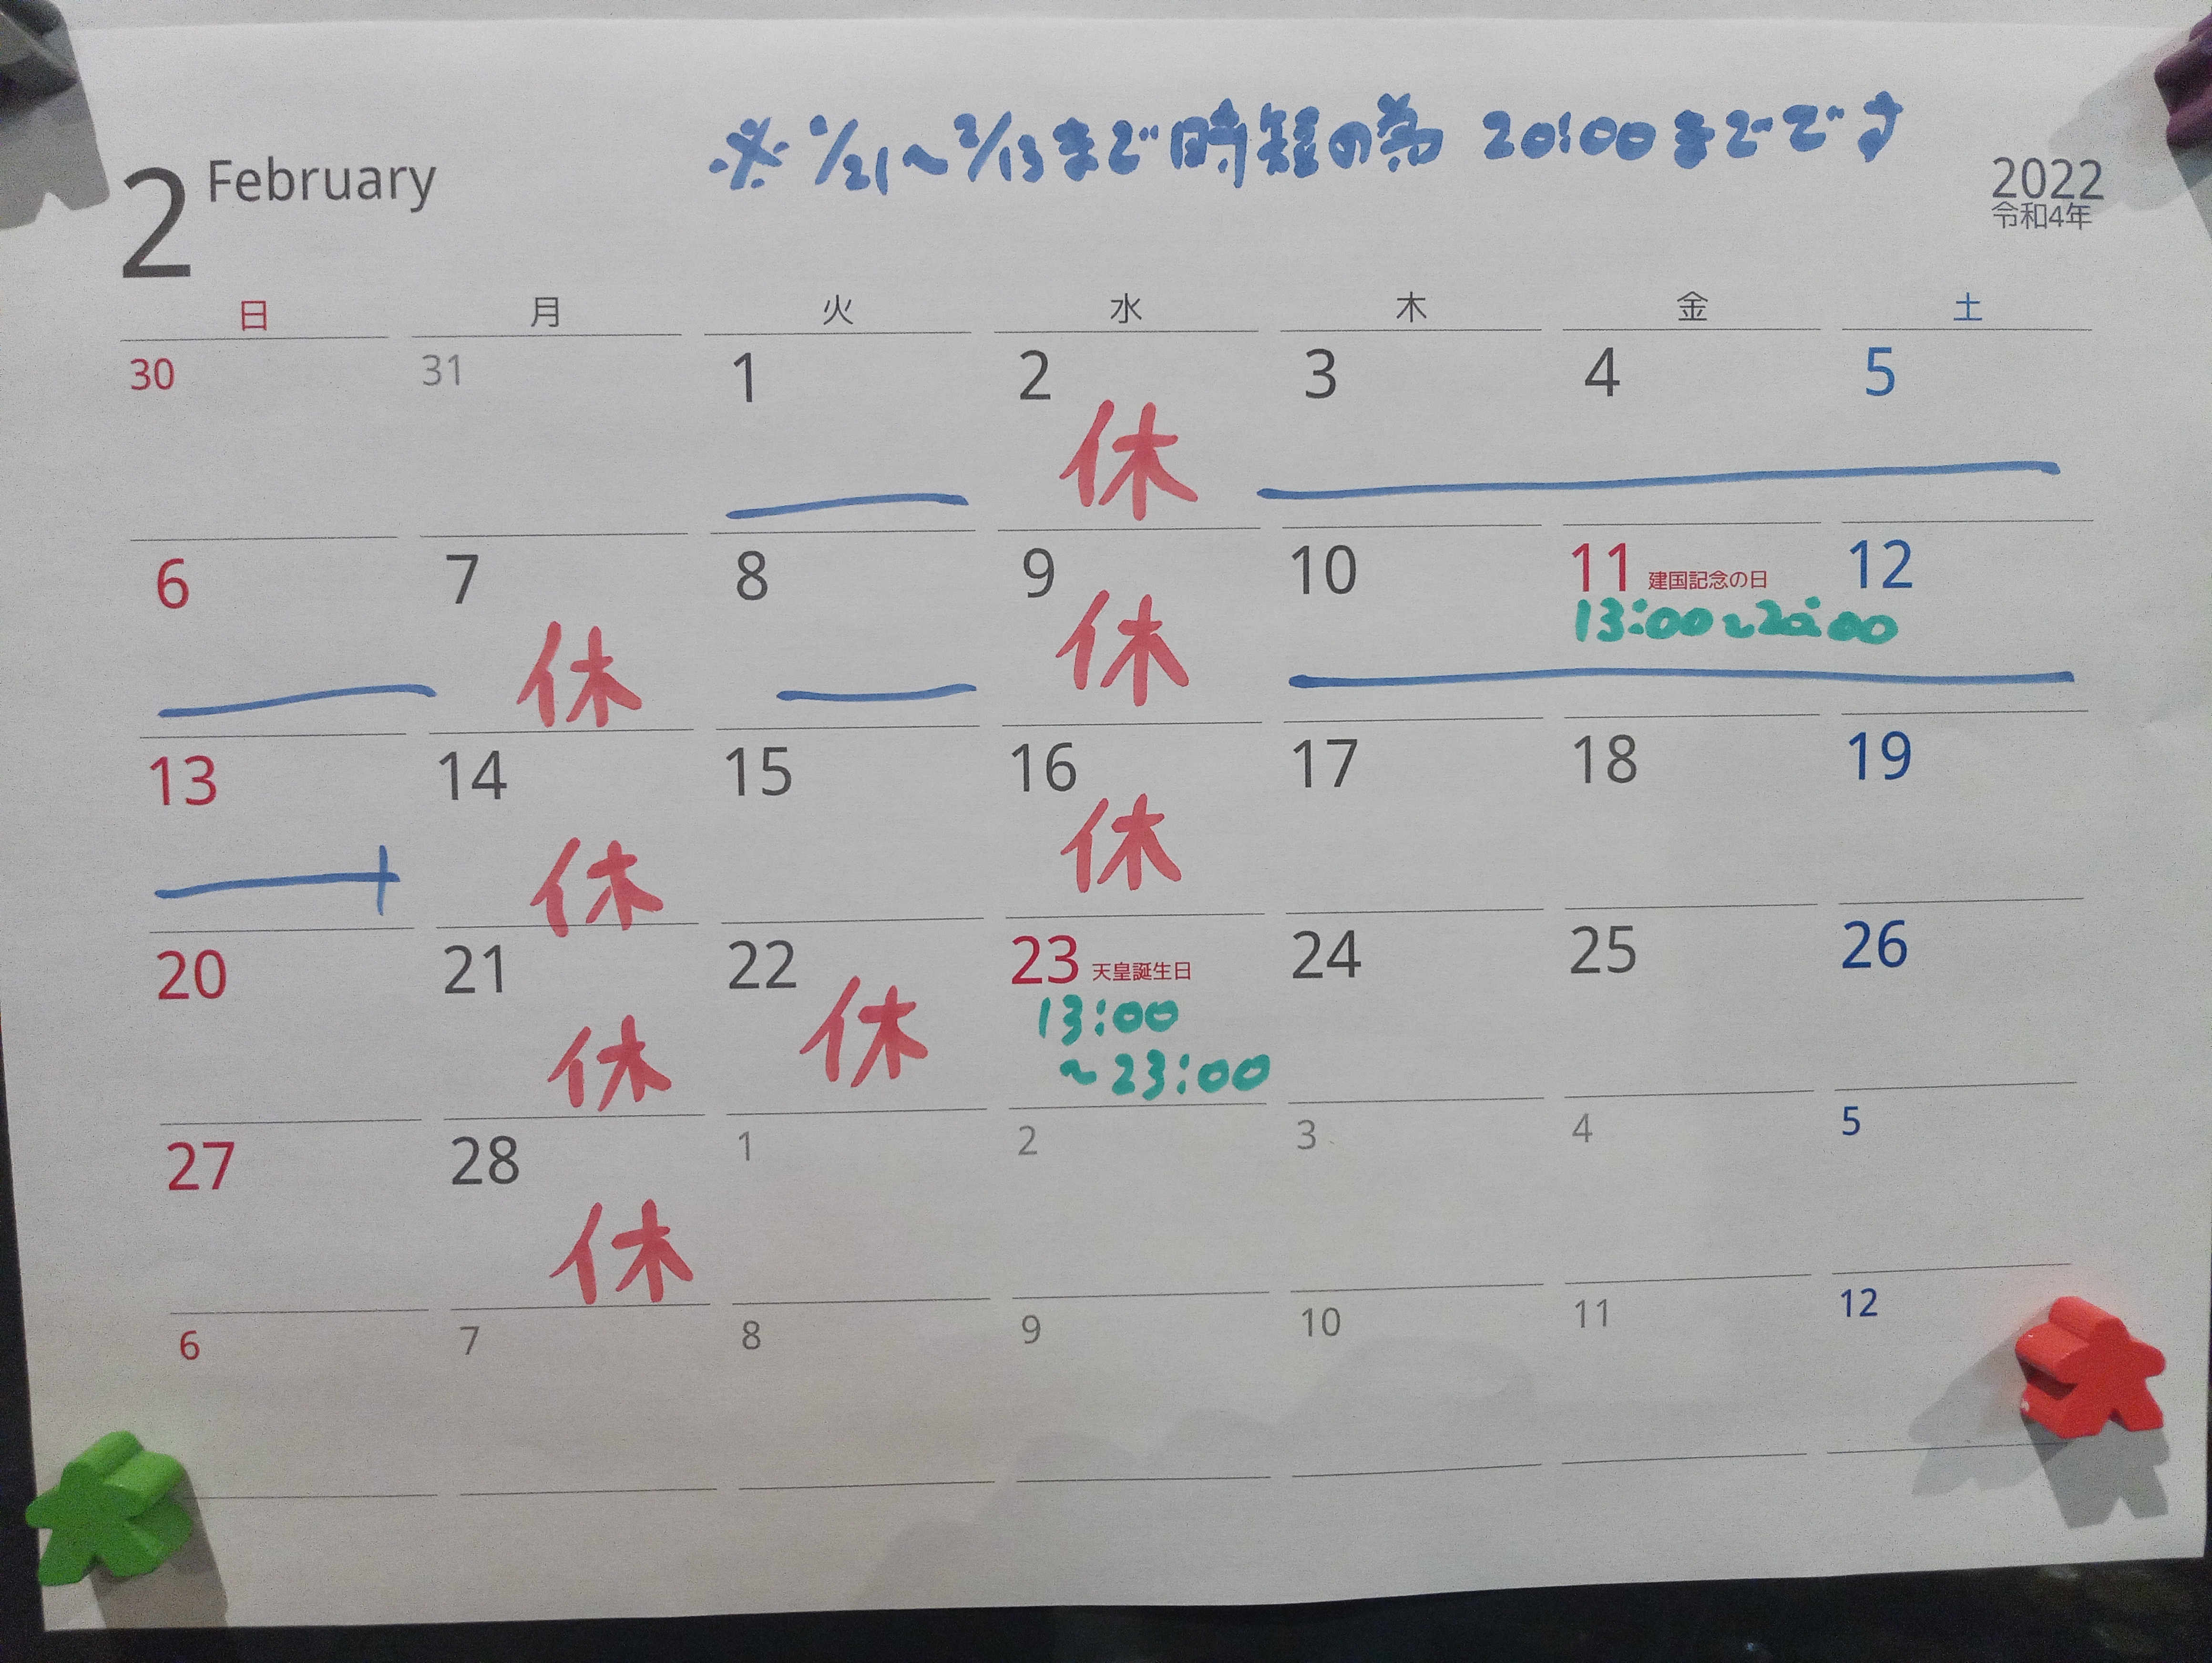 ※ 1/21〜2/13まで時短の為 20:00までです
2 February
2022
令和4年
日 月 火 水 木 金 土
30 31 1 2 3 4 5
休
6 7 8 9 10 11 建国記念の日 12
13:00〜20:00
休 休
13 14 15 16 17 18 19
休 休
20 21 22 23 天皇誕生日 24 25 26
休 休 13:00
〜23:00
27 28 1 2 3 4 5
休
6 7 8 9 10 11 12